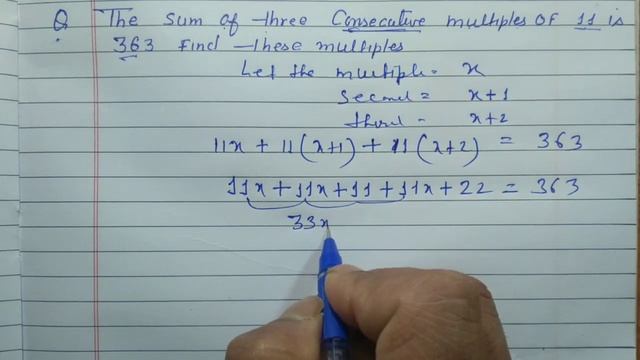 Q The sum of three Consecutive multiples of 11 is
363 Find these multiples
Let the multiple = x
Second = x+1
third = x+2
11x + 11(x+1) + 11(x+2) = 363
11x + 11x + 11 + 11x + 22 = 363
33x